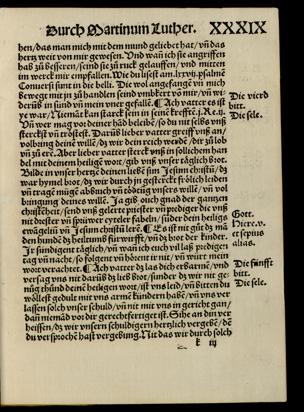 Durch Martinum Luther. XXXIX
hen/das man mich mit dem mund geliebet hat/vñ das
hertz weit von mir gewesen. Vnd wañ ich sie angriffen
hab zů bessern/seind sie zů ruck gelauffen/vnd mitten
im werck mir empfallen. Wie du lisest am.lxxvij.psalmẽ
Conuersi sunt in die belli. Die wol angefangẽ vñ mich
bewegt mit jn zů handlen seind vmbkert võ mir/vñ wi-
derũb in sund vñ mein vner gefallẽ. ¶ Ach vatter es ist
ye war/Niemãt kan starck sein in seinẽ krefftẽ.j.Re.ij.
Vñ wer mag vor deiner hãd beleibẽ/so du nit selbs vns
sterckst vñ tröstest. Darũb lieber vatter greiff vnß an/
volbring deine willẽ/dz wir dein reich werdẽ/dir zů lob
vñ zů erẽ. Aber lieber vatter sterck vnß in sollichem han
del mit deinem heiligẽ wort/gib vnß vnser täglich brot.
Bilde in vnser hertzẽ deinẽ liebẽ sun Jesum christũ/dz
war hymel brot/dz wir durch jn gesterckt frölich leiden
vñ tragẽ mügẽ abbuch vñ tödung vnsers willẽ/vñ vol
bringung deines willẽ. Ja gib ouch gnad der gantzen
christẽheit/send vnß gelerte priester vñ prediger die vnß
nit diester vñ spüwer eyteler fabeln/sůder dein heiligs
ewãgeliũ vñ Jesum christũ lerẽ. ¶ Es ist nit gůt dz mã
den hundẽ dz heiltumb fürwirfft/vñ dz brot der kinder.
Jr sündigent täglich vñ wañ ich euch vil laß predigen
tag vñ nacht/so folgent vñ hörent ir nit/vñ würt mein
wort verachtet. ¶ Ach vatter dz las dich erbarmẽ/vnd
versag vns nit darũb dz lieb brot/sunder dz wir nit ge-
nůg thůnd deinẽ heiligen wort/ist vns leid/vñ bitten du
wöllest gedult mit vns armẽ kindern habẽ/vñ vns ver
lassen solch vnser schuld/vñ nit mit vns in gericht gan/
dañ niemãd vor dir gerechtfertiget ist. Sihe an din ver
heissen/dz wir vnsern schuldigern hertzlich vergebẽ/dẽ
du versprochẽ hast vergebung. Nit das wir durch solch
k iij
Die vierd
bitt.
Die sele.
Gott.
Hiere.v.
et sepius
alias.
Die fünfft
bitt.
Die sele.